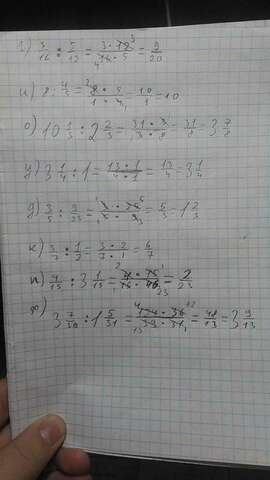 г) 3/16 : 5/12 = 3·12/16·5 = 9/20
и) 8 : 4/5 = 8·5/1·4 = 10/1 = 10
о) 10 1/3 : 2 2/3 = 31·3/3·8 = 31/8 = 3 7/8
у) 3 1/4 : 1 = 13·1/4·1 = 13/4 = 3 1/4
д) 3/5 : 9/25 = 3·25/5·9 = 5/3 = 1 2/3
к) 3/7 : 1/2 = 3·2/7·1 = 6/7
п) 4/15 : 3 1/15 = 4·15/15·46 = 2/23
ф) 3 7/39 : 1 5/31 = 124·31/39·36